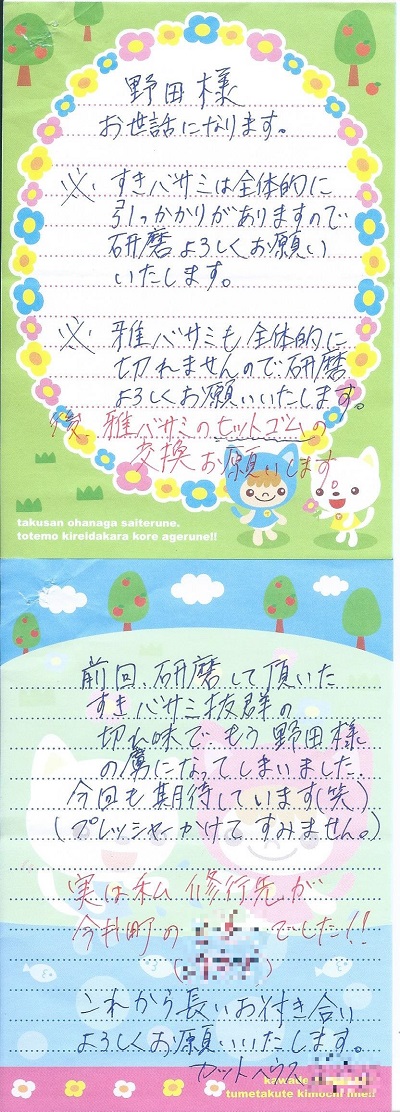 野田様
お世話になります。
※ すきバサミは全体的に
引っかかりがありますので
研磨よろしくお願い
いたします。
※ 雅バサミも全体的に
切れませんので研磨
よろしくお願いいたします。
後、雅バサミのヒットゴムの
交換お願いします。
takusan ohanaga saiterune.
totemo kireidakara kore agerune!!
前回、研磨して頂いた
すきバサミ抜群の
切れ味で、もう野田様
の虜になってしまいました。
今回も期待しています(笑)
(プレッシャーかけてすみません。)
実は私 修行先が
今井町の
でした!!
これから長いお付き合い
よろしくお願いいたします。
カットハウス
tumetakute kimochi iine!!